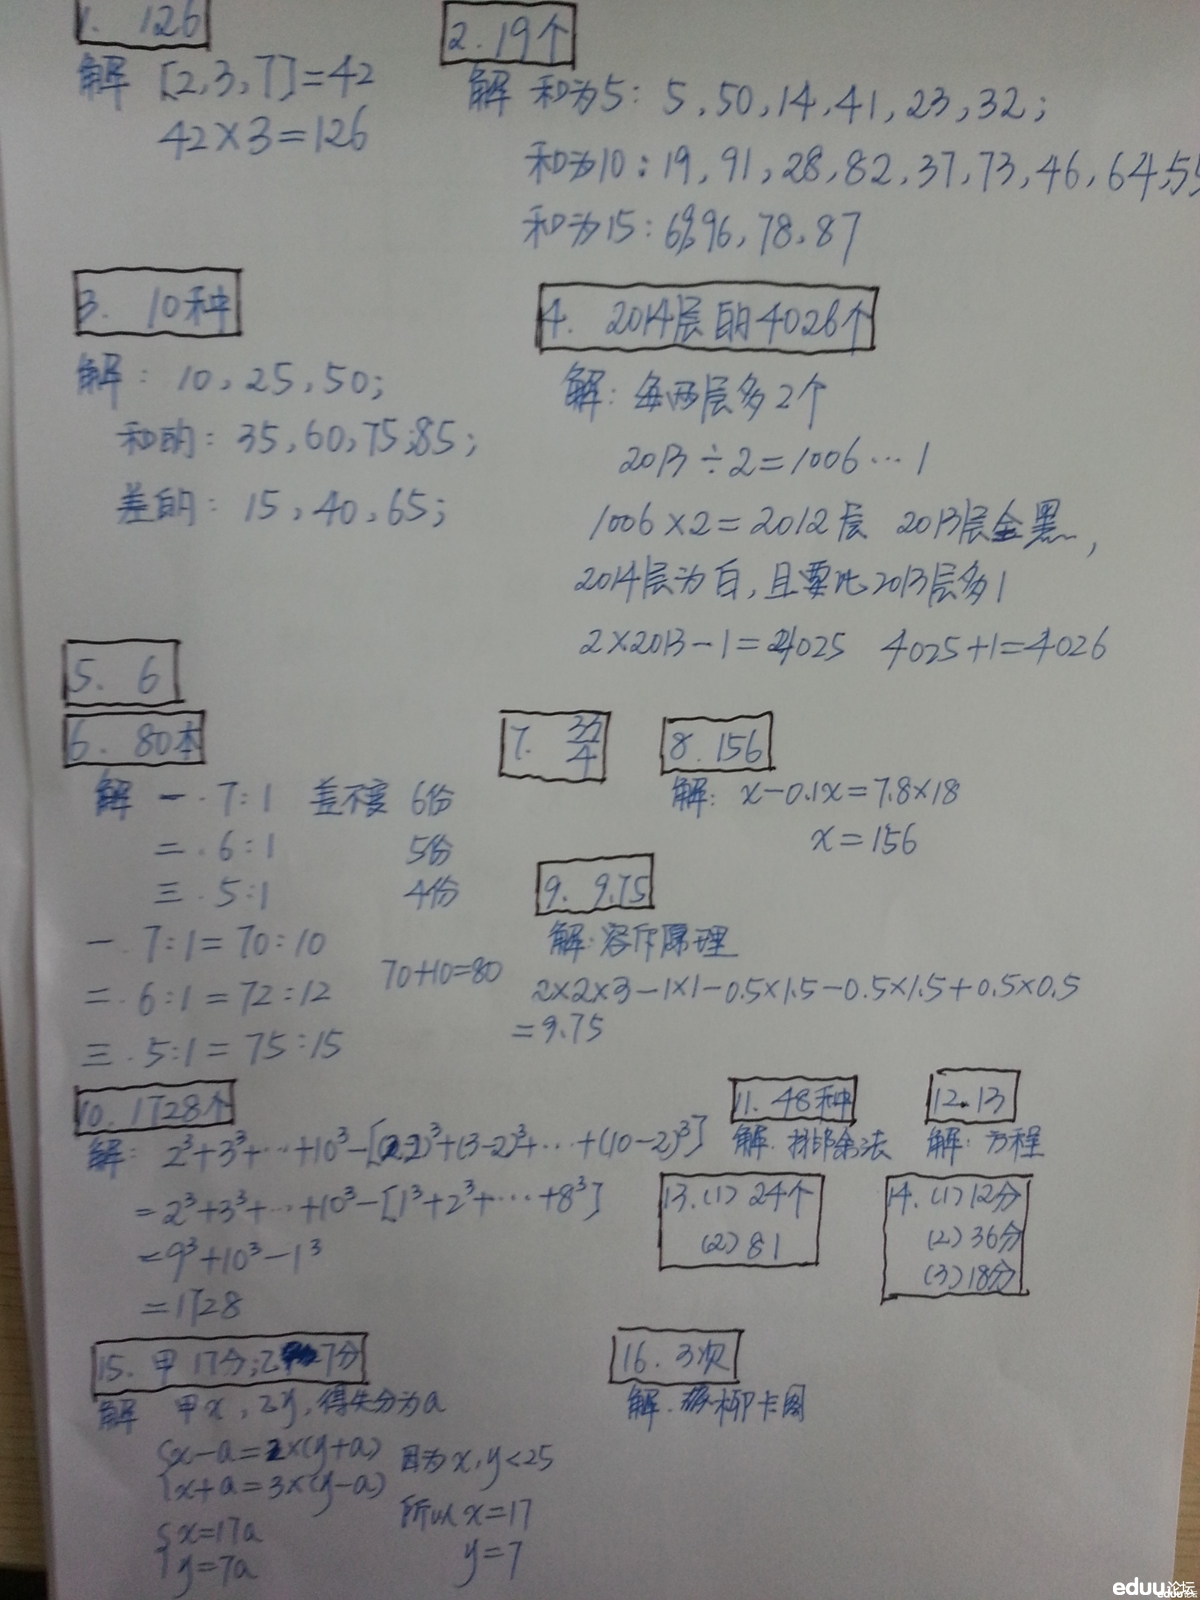 1. 126
解 [2,3,7]=42
42×3=126
2. 19个
解 和为5: 5,50,14,41,23,32;
和为10: 19,91,28,82,37,73,46,64,55
和为15: 69,96,78,87
3. 10种
解: 10,25,50;
和的: 35,60,75,85;
差的: 15,40,65;
4. 2014层的4026个
解: 每两层多2个
2013÷2=1006…1
1006×2=2012层 2013层全黑,
2014层为白,且要比2013层多1
2×2013-1=4025 4025+1=4026
5. 6
6. 80本
解 一.7:1 差不变 6份
二.6:1 5份
三.5:1 4份
一.7:1=70:10
二.6:1=72:12
三.5:1=75:15
70+10=80
7. 33/4
8. 156
解: x-0.1x=7.8×18
x=156
9. 9.75
解:容斥原理
2×2×3-1×1-0.5×1.5-0.5×1.5+0.5×0.5
=9.75
10. 1728个
解: 2³+3³+…+10³-[(2-2)³+(3-2)³+…+(10-2)³]
=2³+3³+…+10³-[1³+2³+…+8³]
=9³+10³-1³
=1728
11. 48种
解. 排除法
12. 13
解: 方程
13.(1) 24个
(2) 81
14.(1)12分
(2)36分
(3)18分
15. 甲 17分;乙 7分
解 甲x,乙y,得失分为a
{x-a=2×(y+a)
{x+a=3×(y-a)
{x=17a
{y=7a
因为x,y<25
所以x=17
y=7
16. 3次
解. 柳卡图
eduu论坛